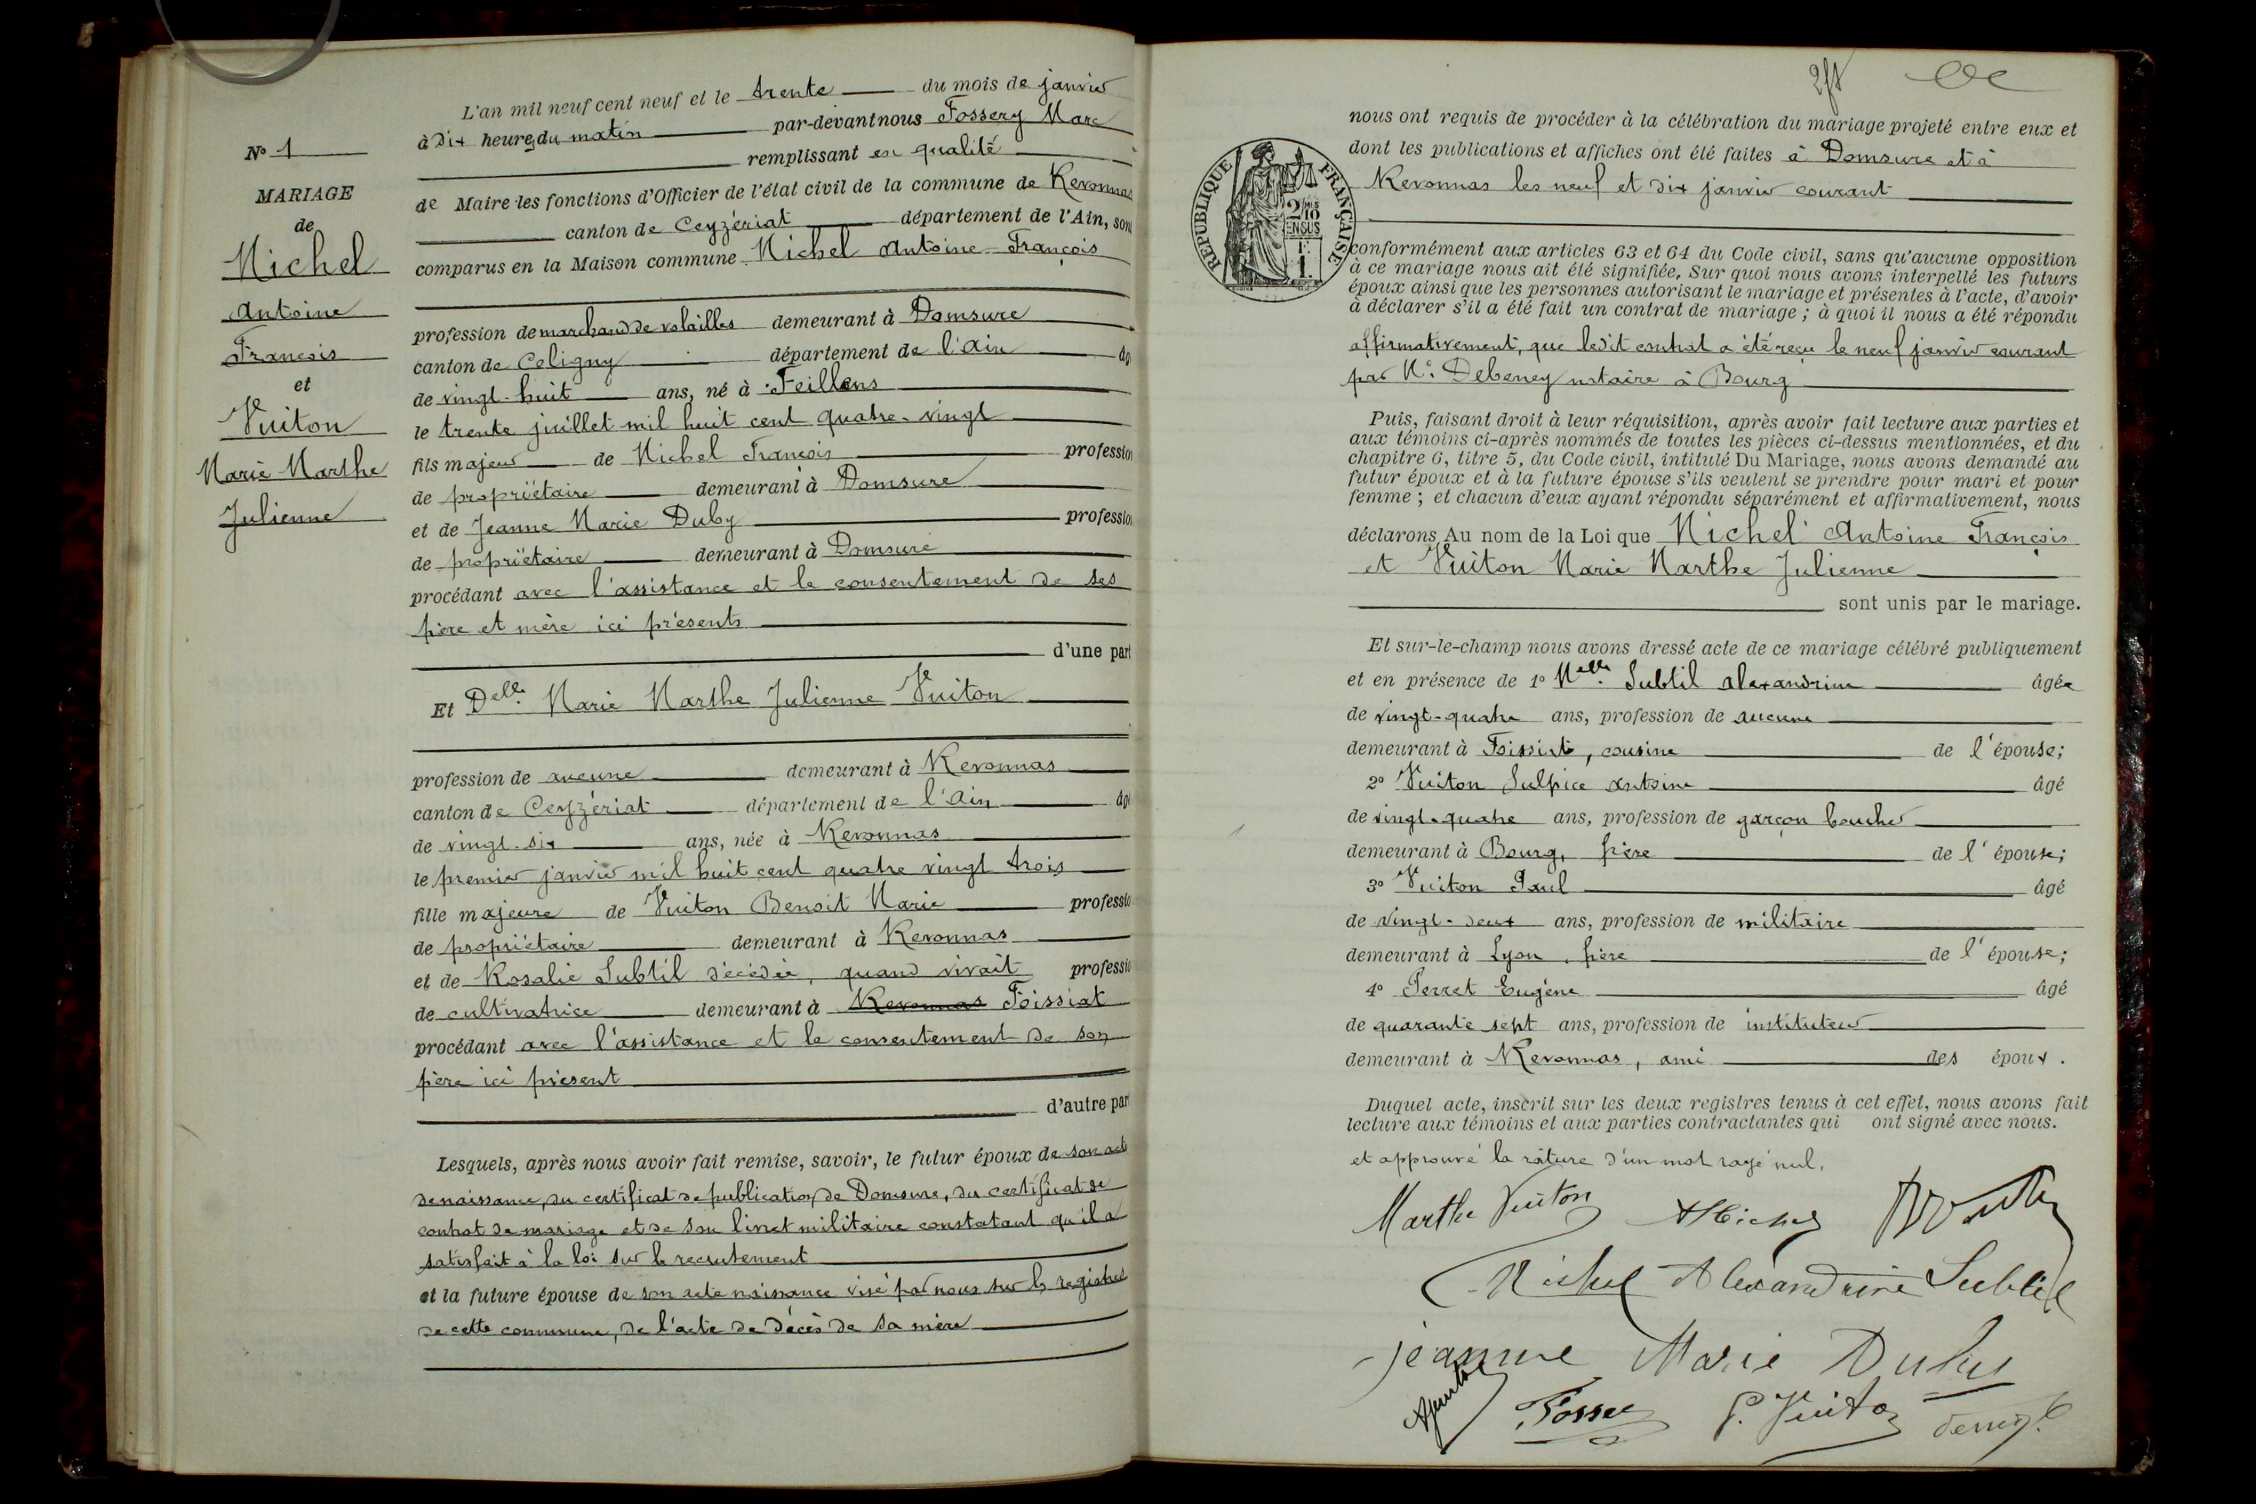 N° 1
MARIAGE
de
Michel
Antoine
François
et
Vuiton
Marie Marthe
Julienne
L'an mil neuf cent neuf et le trente du mois de janvier
à dix heures du matin par-devant nous Fossery Marc
remplissant en qualité
de Maire les fonctions d'Officier de l'état civil de la commune de Revonnas
canton de Ceyzériat département de l'Ain, sont
comparus en la Maison commune Michel Antoine François
profession de marchand de volailles demeurant à Domsure
canton de Coligny département de l'Ain âgé
de vingt-huit ans, né à Feillens
le trente juillet mil huit cent quatre-vingt
fils majeur de Michel François profession
de propriétaire demeurant à Domsure
et de Jeanne Marie Duby profession
de propriétaire demeurant à Domsure
procédant avec l'assistance et le consentement de ses
père et mère ici présents
d'une part
Et Delle Marie Marthe Julienne Vuiton
profession de aucune demeurant à Revonnas
canton de Ceyzériat département de l'Ain âgé
de vingt-six ans, née à Revonnas
le premier janvier mil huit cent quatre vingt trois
fille majeure de Vuiton Benoit Marie profession
de propriétaire demeurant à Revonnas
et de Rosalie Subtil décédée, quand vivait profession
de cultivatrice demeurant à Revonnas Foissiat
procédant avec l'assistance et le consentement de son
père ici présent
d'autre part
Lesquels, après nous avoir fait remise, savoir, le futur époux de son acte
de naissance, du certificat de publication de Domsure, du certificat de
contrat de mariage et de son livret militaire constatant qu'il a
satisfait à la loi sur le recrutement
et la future épouse de son acte naissance visé par nous sur les registres
de cette commune, de l'acte de décès de sa mère
RÉPUBLIQUE FRANÇAISE
2/10
EN SUS
F.
1.
nous ont requis de procéder à la célébration du mariage projeté entre eux et
dont les publications et affiches ont été faites à Domsure et à
Revonnas les neuf et dix janvier courant
conformément aux articles 63 et 64 du Code civil, sans qu'aucune opposition
à ce mariage nous ait été signifiée. Sur quoi nous avons interpellé les futurs
époux ainsi que les personnes autorisant le mariage et présentes à l'acte, d'avoir
à déclarer s'il a été fait un contrat de mariage ; à quoi il nous a été répondu
affirmativement, que ledit contrat a été reçu le neuf janvier courant
par Me Debeney notaire à Bourg
Puis, faisant droit à leur réquisition, après avoir fait lecture aux parties et
aux témoins ci-après nommés de toutes les pièces ci-dessus mentionnées, et du
chapitre 6, titre 5, du Code civil, intitulé Du Mariage, nous avons demandé au
futur époux et à la future épouse s'ils veulent se prendre pour mari et pour
femme ; et chacun d'eux ayant répondu séparément et affirmativement, nous
déclarons Au nom de la Loi que Michel Antoine François
et Vuiton Marie Marthe Julienne
sont unis par le mariage.
Et sur-le-champ nous avons dressé acte de ce mariage célébré publiquement
et en présence de 1° Melle Subtil Alexandrine âgée
de vingt-quatre ans, profession de aucune
demeurant à Foissiat, cousine de l'épouse;
2° Vuiton Sulpice Antoine âgé
de vingt-quatre ans, profession de garçon boucher
demeurant à Bourg, frère de l'épouse;
3° Vuiton Paul âgé
de vingt-deux ans, profession de militaire
demeurant à Lyon, frère de l'épouse;
4° Perret Eugène âgé
de quarante sept ans, profession de instituteur
demeurant à Revonnas, ami des époux.
Duquel acte, inscrit sur les deux registres tenus à cet effet, nous avons fait
lecture aux témoins et aux parties contractantes qui ont signé avec nous.
et approuvé la rature d'un mot rayé nul.
Marthe Vuiton AMichel
Michel Alexandrine Subtil
jeanne Marie Duby
P. Vuiton